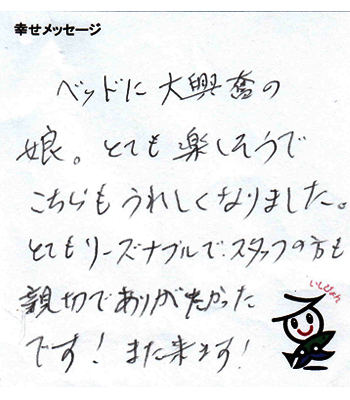 幸せメッセージ
ベッドに大興奮の
娘。とても楽しそうで
こちらもうれしくなりました。
とてもリーズナブルで、スタッフの方も
親切でありがたかった
です！また来ます！
いしぴょん